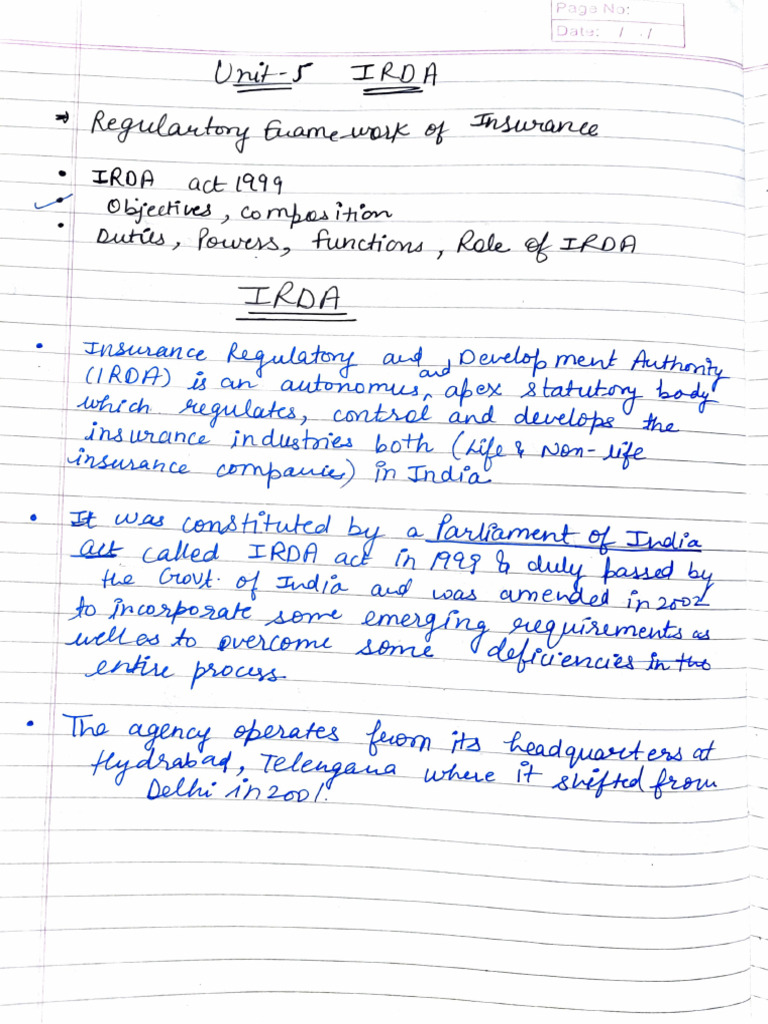 Page No:
Date: / /
Unit-5 IRDA
→ Regulartory Framework of Insurance
• IRDA act 1999
• Objectives, composition
• Duties, Powers, functions, Role of IRDA
IRDA
• Insurance Regulatory and Development Authority
(IRDA) is an autonomus, and apex statutory body
which regulates, control and develops the
insurance industries both (Life & Non-life
insurance companies) in India
• It was constituted by a Parliament of India
act called IRDA act in 1999 & duly passed by
the Govt. of India and was amended in 2002
to incorporate some emerging requirements as
well as to overcome some deficiencies in the
entire process.
• The agency operates from its headquarters at
Hydrabad, Telengana where it shifted from
Delhi in 2001.